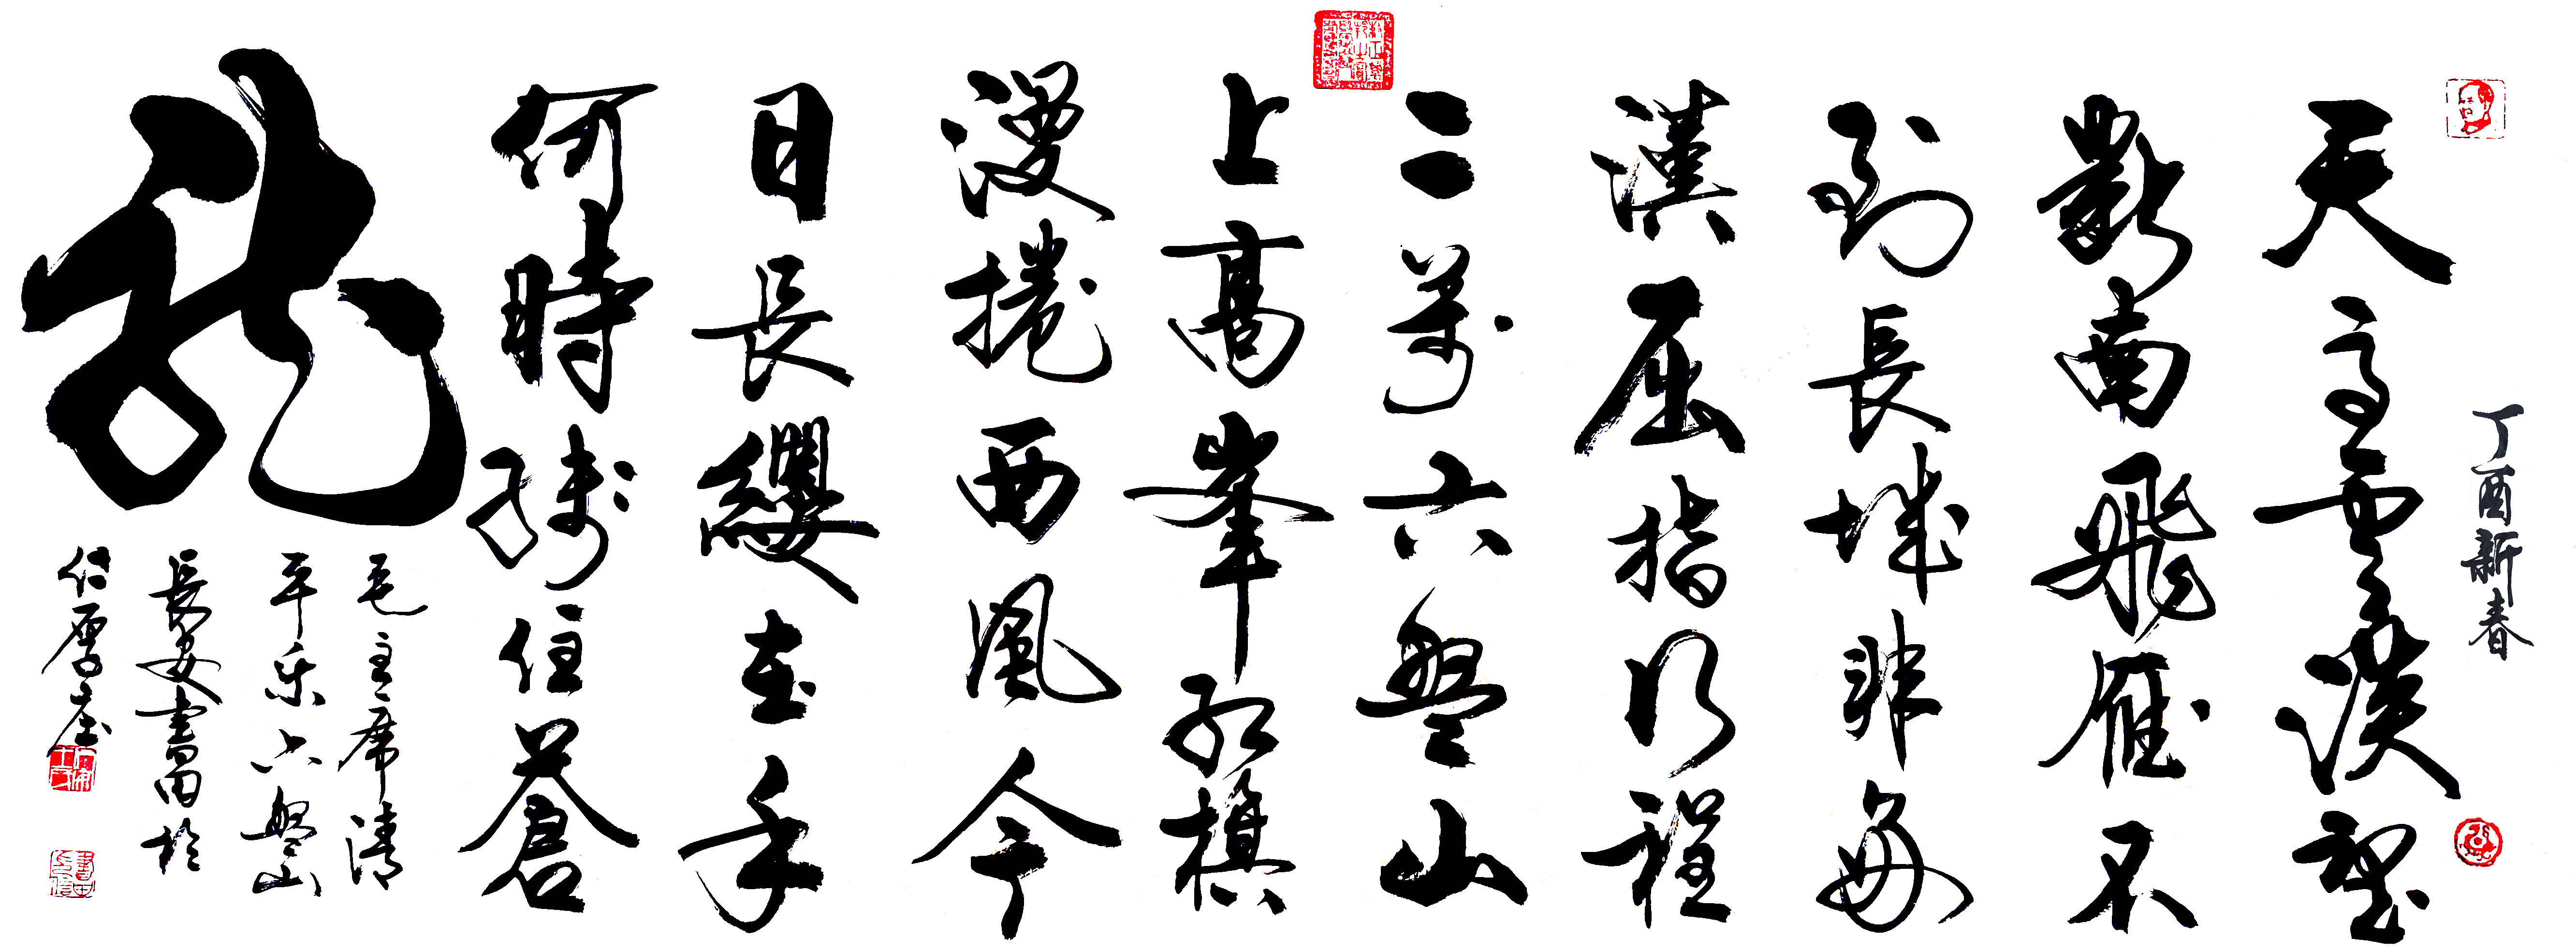 丁酉新春
天高雲淡望
斷南飛雁不
到長城非好
漢屈指行程
二萬六盤山
上高峯紅旗
漫捲西風今
日長纓在手
何時縛住蒼
龍
毛主席清
平樂六盤山
長安書於